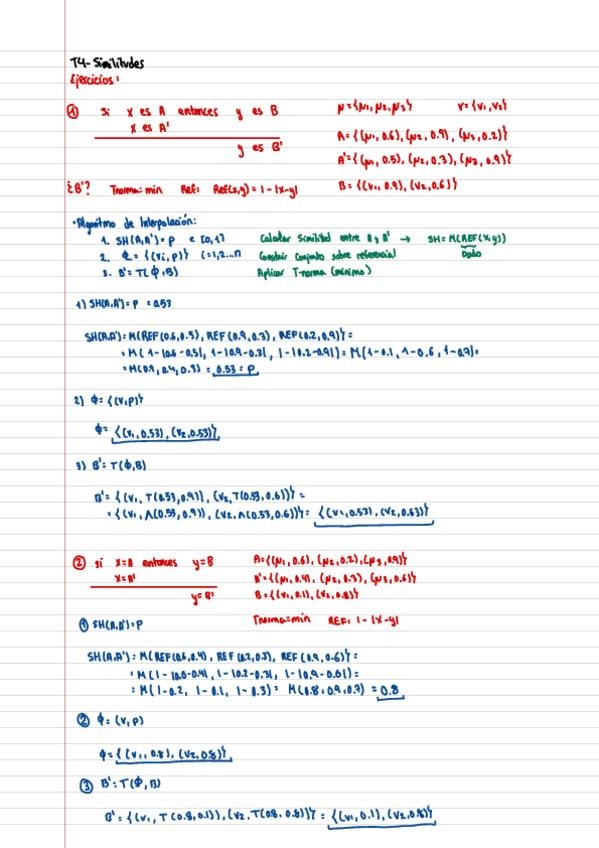 T4- Similitudes
Ejercicios:
① Si x es A entonces y es B
μ = {μ1, μ2, μ3} V = {v1, v2}
x es A'
A = {(μ1, 0.6), (μ2, 0.9), (μ3, 0.2)}
y es B'
A' = {(μ1, 0.5), (μ2, 0.3), (μ3, 0.9)}
¿B'? Tnorma: min Ref: Ref(x,y) = 1-|x-y|
B = {(v1, 0.9), (v2, 0.6)}
•Algoritmo de Interpolación:
1. SH(A,A') = p ∈ [0,1] Calcular Similitud entre A y A' → SH = M(REF(x,y))
2. Φ = {(vi, p)} i=1,2...n Construir conjunto sobre referencial Dado
3. B' = T(Φ,B) Aplicar T-norma (mínimo)
1) SH(A,A') = p = 0.53
SH(A,A') = M(REF(0.6,0.5), REF(0.9,0.3), REF(0.2,0.9)) =
= M(1-|0.6-0.5|, 1-|0.9-0.3|, 1-|0.2-0.9|) = M(1-0.1, 1-0.6, 1-0.7) =
= M(0.9, 0.4, 0.3) = 0.53 = p
2) Φ = {(v,p)}
Φ = {(v1, 0.53), (v2, 0.53)}
3) B' = T(Φ,B)
B' = {(v1, T(0.53,0.9)), (v2, T(0.53,0.6))} =
= {(v1, Λ(0.53, 0.9)), (v2, Λ(0.53, 0.6))} = {(v1, 0.53), (v2, 0.53)}
② si x=A entonces y=B A = {(μ1, 0.6), (μ2, 0.2), (μ3, 0.9)}
x=A' A' = {(μ1, 0.4), (μ2, 0.3), (μ3, 0.6)}
y=B' B = {(v1, 0.1), (v2, 0.8)}
① SH(A,A') = p Tnorma=min REF: 1-|x-y|
SH(A,A') = M(REF(0.6,0.4), REF(0.2,0.3), REF(0.9,0.6)) =
= M(1-|0.6-0.4|, 1-|0.2-0.3|, 1-|0.9-0.6|) =
= M(1-0.2, 1-0.1, 1-0.3) = M(0.8, 0.9, 0.7) = 0.8
② Φ = (v,p)
Φ = {(v1, 0.8), (v2, 0.8)}
③ B' = T(Φ,B)
B' = {(v1, T(0.8, 0.1)), (v2, T(0.8, 0.8))} = {(v1, 0.1), (v2, 0.8)}